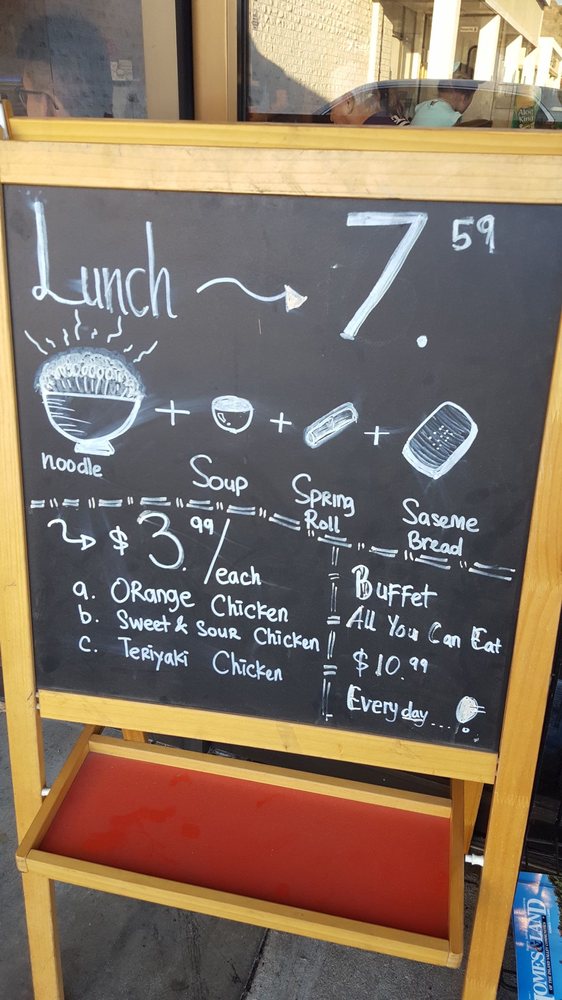 Lunch → 7.59
noodle + Soup + Spring Roll + Saseme Bread
→ $3.99/each
a. Orange Chicken
b. Sweet & Sour Chicken
c. Teriyaki Chicken
Buffet
All You Can Eat
$10.99
Everyday...
HOMES & LAND